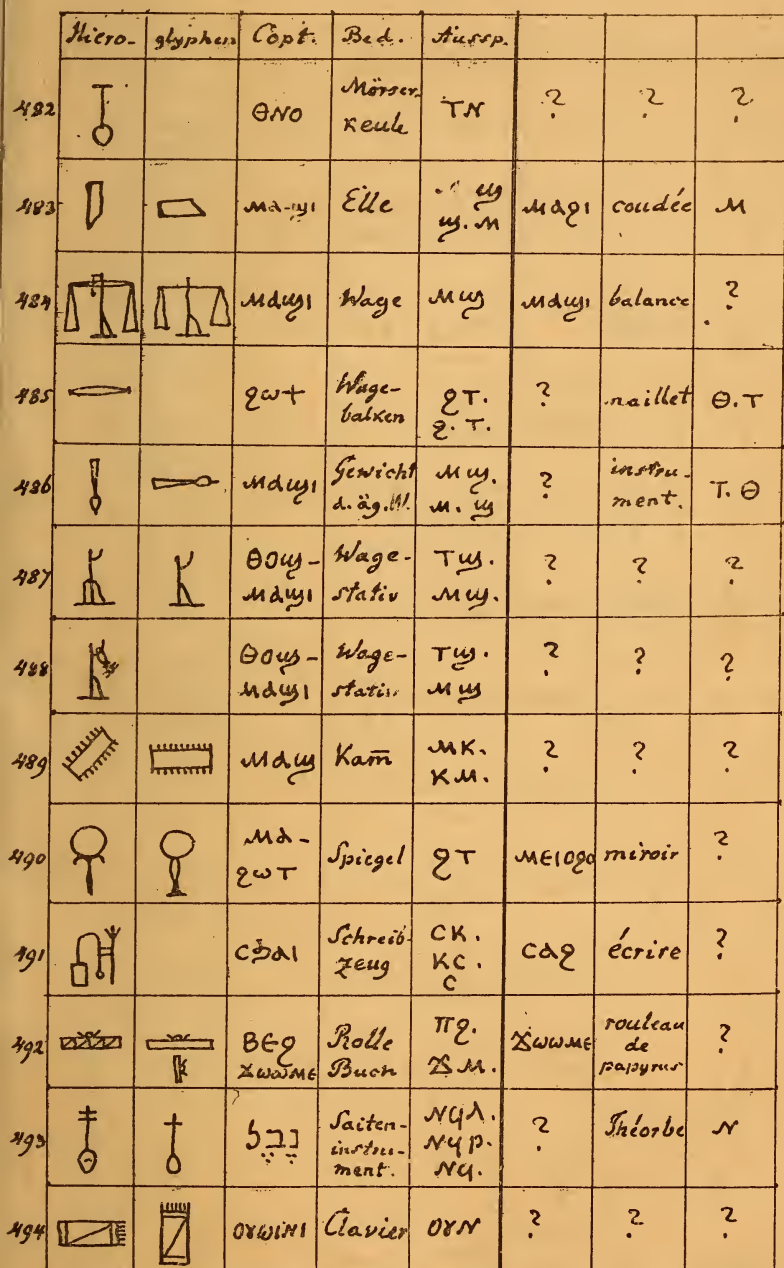 Hiero- glyphen Copt. Bed. Aussp.
482 ΘΝΟ Mörser- keule ΤΝ ? ? ?
483 ⲙⲁ-ϣⲓ Elle ϣ ϣ. ⲙ ⲙⲁϩⲓ coudée ⲙ
484 ⲙⲁϣⲓ Wage ⲙϣ ⲙⲁϣⲓ balance ?
485 ϩⲱϯ Wage- balken ϩⲧ. ϩ. ⲧ. ? maillet ⲑ.ⲧ
486 ⲙⲁϣⲓ Gewicht d. äg. W. ⲙϣ. ⲙ. ϣ ? instru- ment. ⲧ. ⲑ
487 ⲑⲟϣ- ⲙⲁϣⲓ Wage- stativ ⲧϣ. ⲙϣ. ? ? ?
488 ⲑⲟϣ- ⲙⲁϣⲓ Wage- stativ ⲧϣ. ⲙϣ ? ? ?
489 ⲙⲁϣ Kam̅ ⲙⲕ. ⲕⲙ. ? ? ?
490 ⲙⲁ- ϩⲱⲧ Spiegel ϩⲧ ⲙⲉⲓⲟϩⲟ miroir ?
491 ⲥϧⲁⲓ Schreib- zeug ⲥⲕ. ⲕⲥ. ⲥ ⲥⲁϩ écrire ?
492 ⲃⲉϩ ϫⲱⲱⲙⲉ Rolle Buch ⲡϩ. ϫⲙ. ϫⲱⲱⲙⲉ rouleau de papyrus ?
493 נֵבֶל Saiten- instru- ment. ⲛϥⲗ. ⲛϥⲣ. ⲛϥ. ? Théorbe ⲛ
494 ⲟⲩⲱⲓⲛⲓ Clavier ⲟⲩⲛ ? ? ?